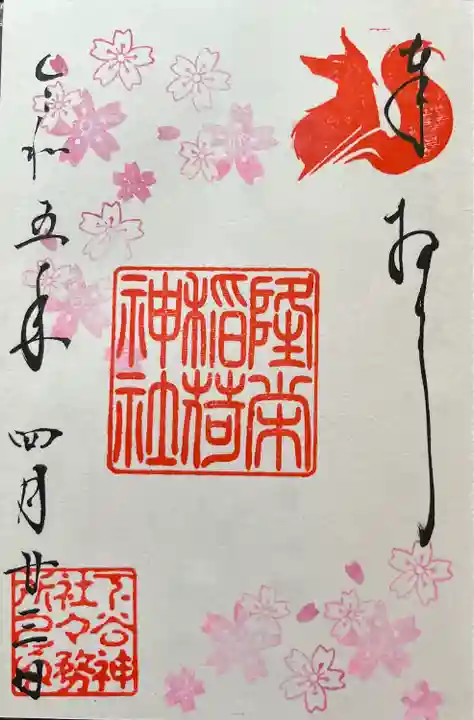 奉拝
隆栄
稲荷
神社
令和五年 四月廿三日
下谷神
社々務
所之印